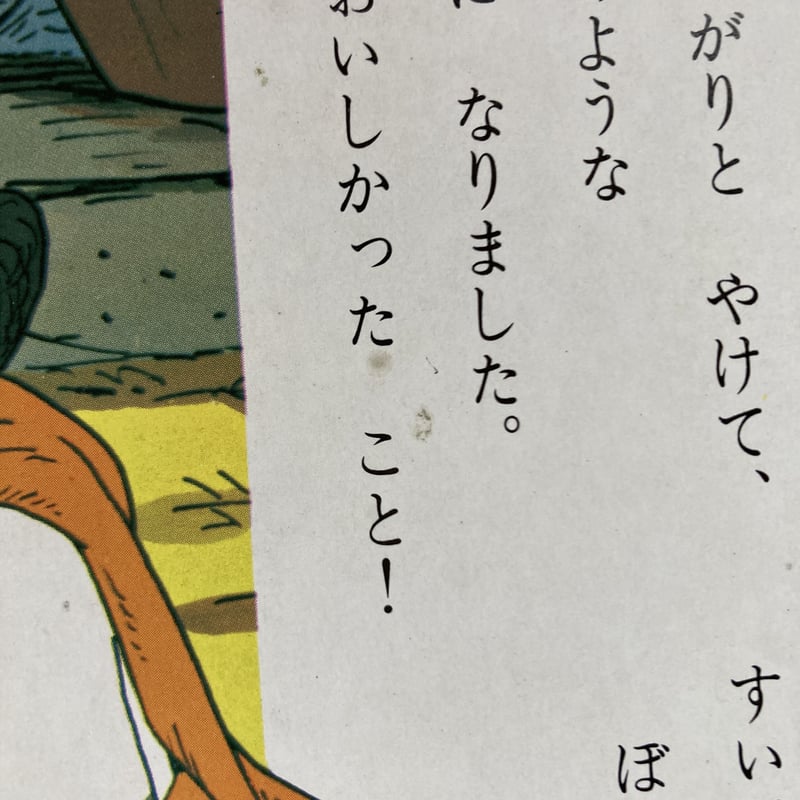 がりと　やけて、
すい
ような
ぼ
なりました。
おいしかった　こと！